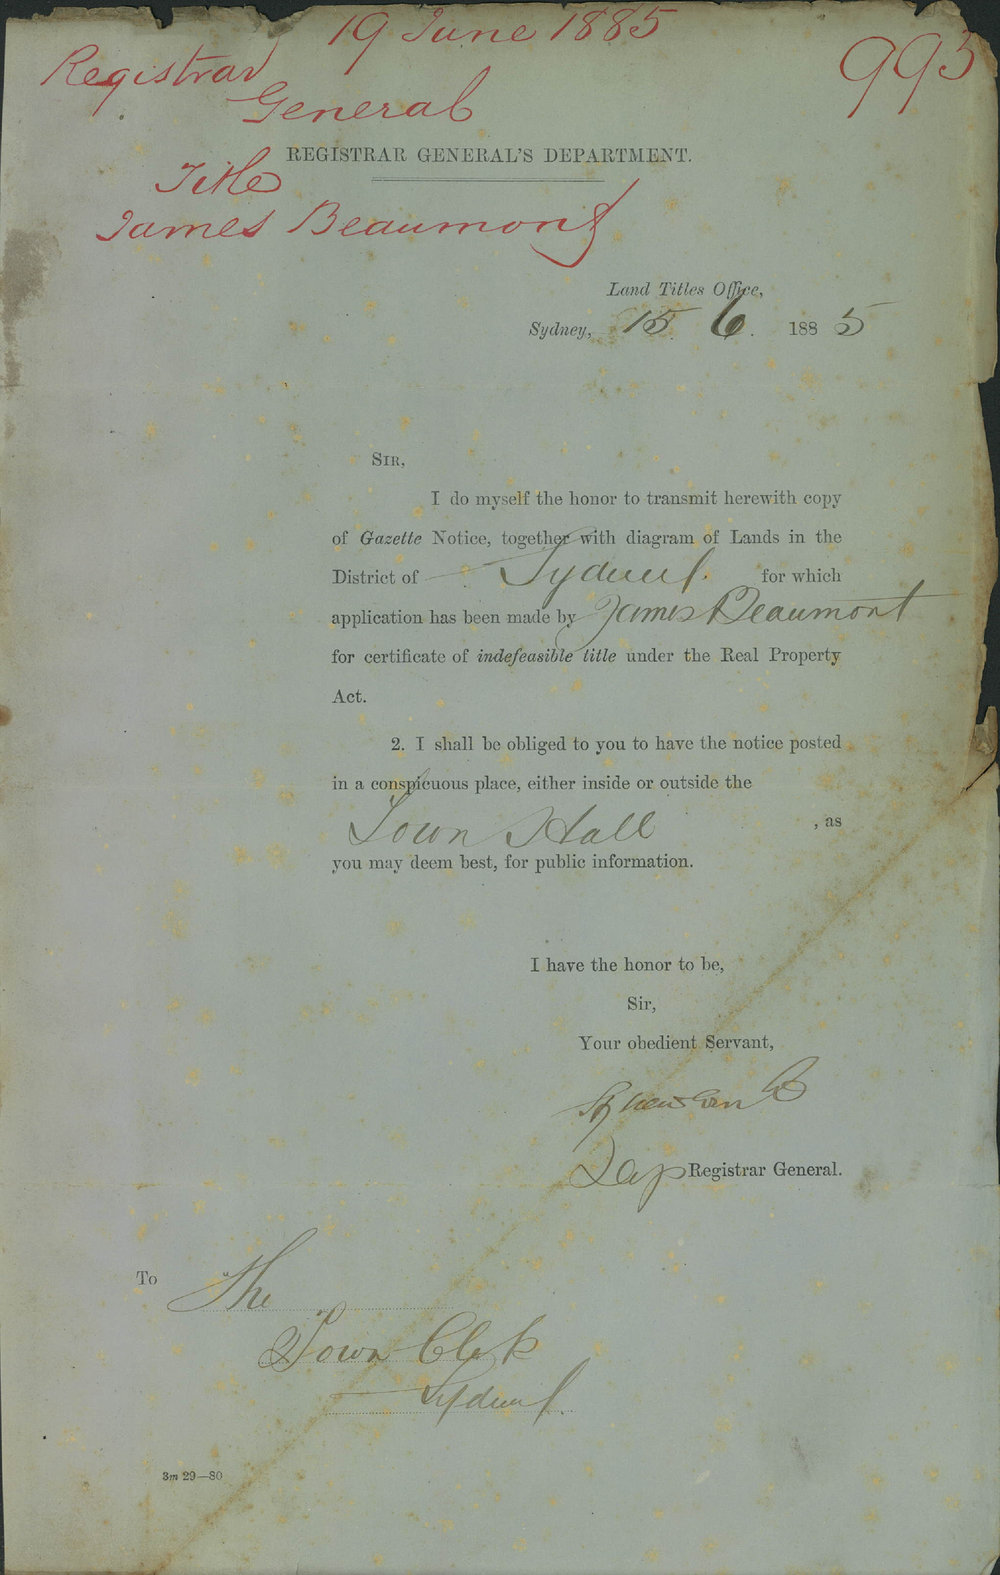 19 June 1885
993
Registrar
General
REGISTRAR GENERAL'S DEPARTMENT.
Title
James Beaumont
Land Titles Office,
Sydney, 15. 6. 1885
SIR,
I do myself the honor to transmit herewith copy
of Gazette Notice, together with diagram of Lands in the
District of Sydney for which
application has been made by James Beaumont
for certificate of indefeasible title under the Real Property
Act.
2. I shall be obliged to you to have the notice posted
in a conspicuous place, either inside or outside the
Town Hall , as
you may deem best, for public information.
I have the honor to be,
Sir,
Your obedient Servant,
Dep Registrar General.
To The
Town Clerk
Sydney.
3m 29—80